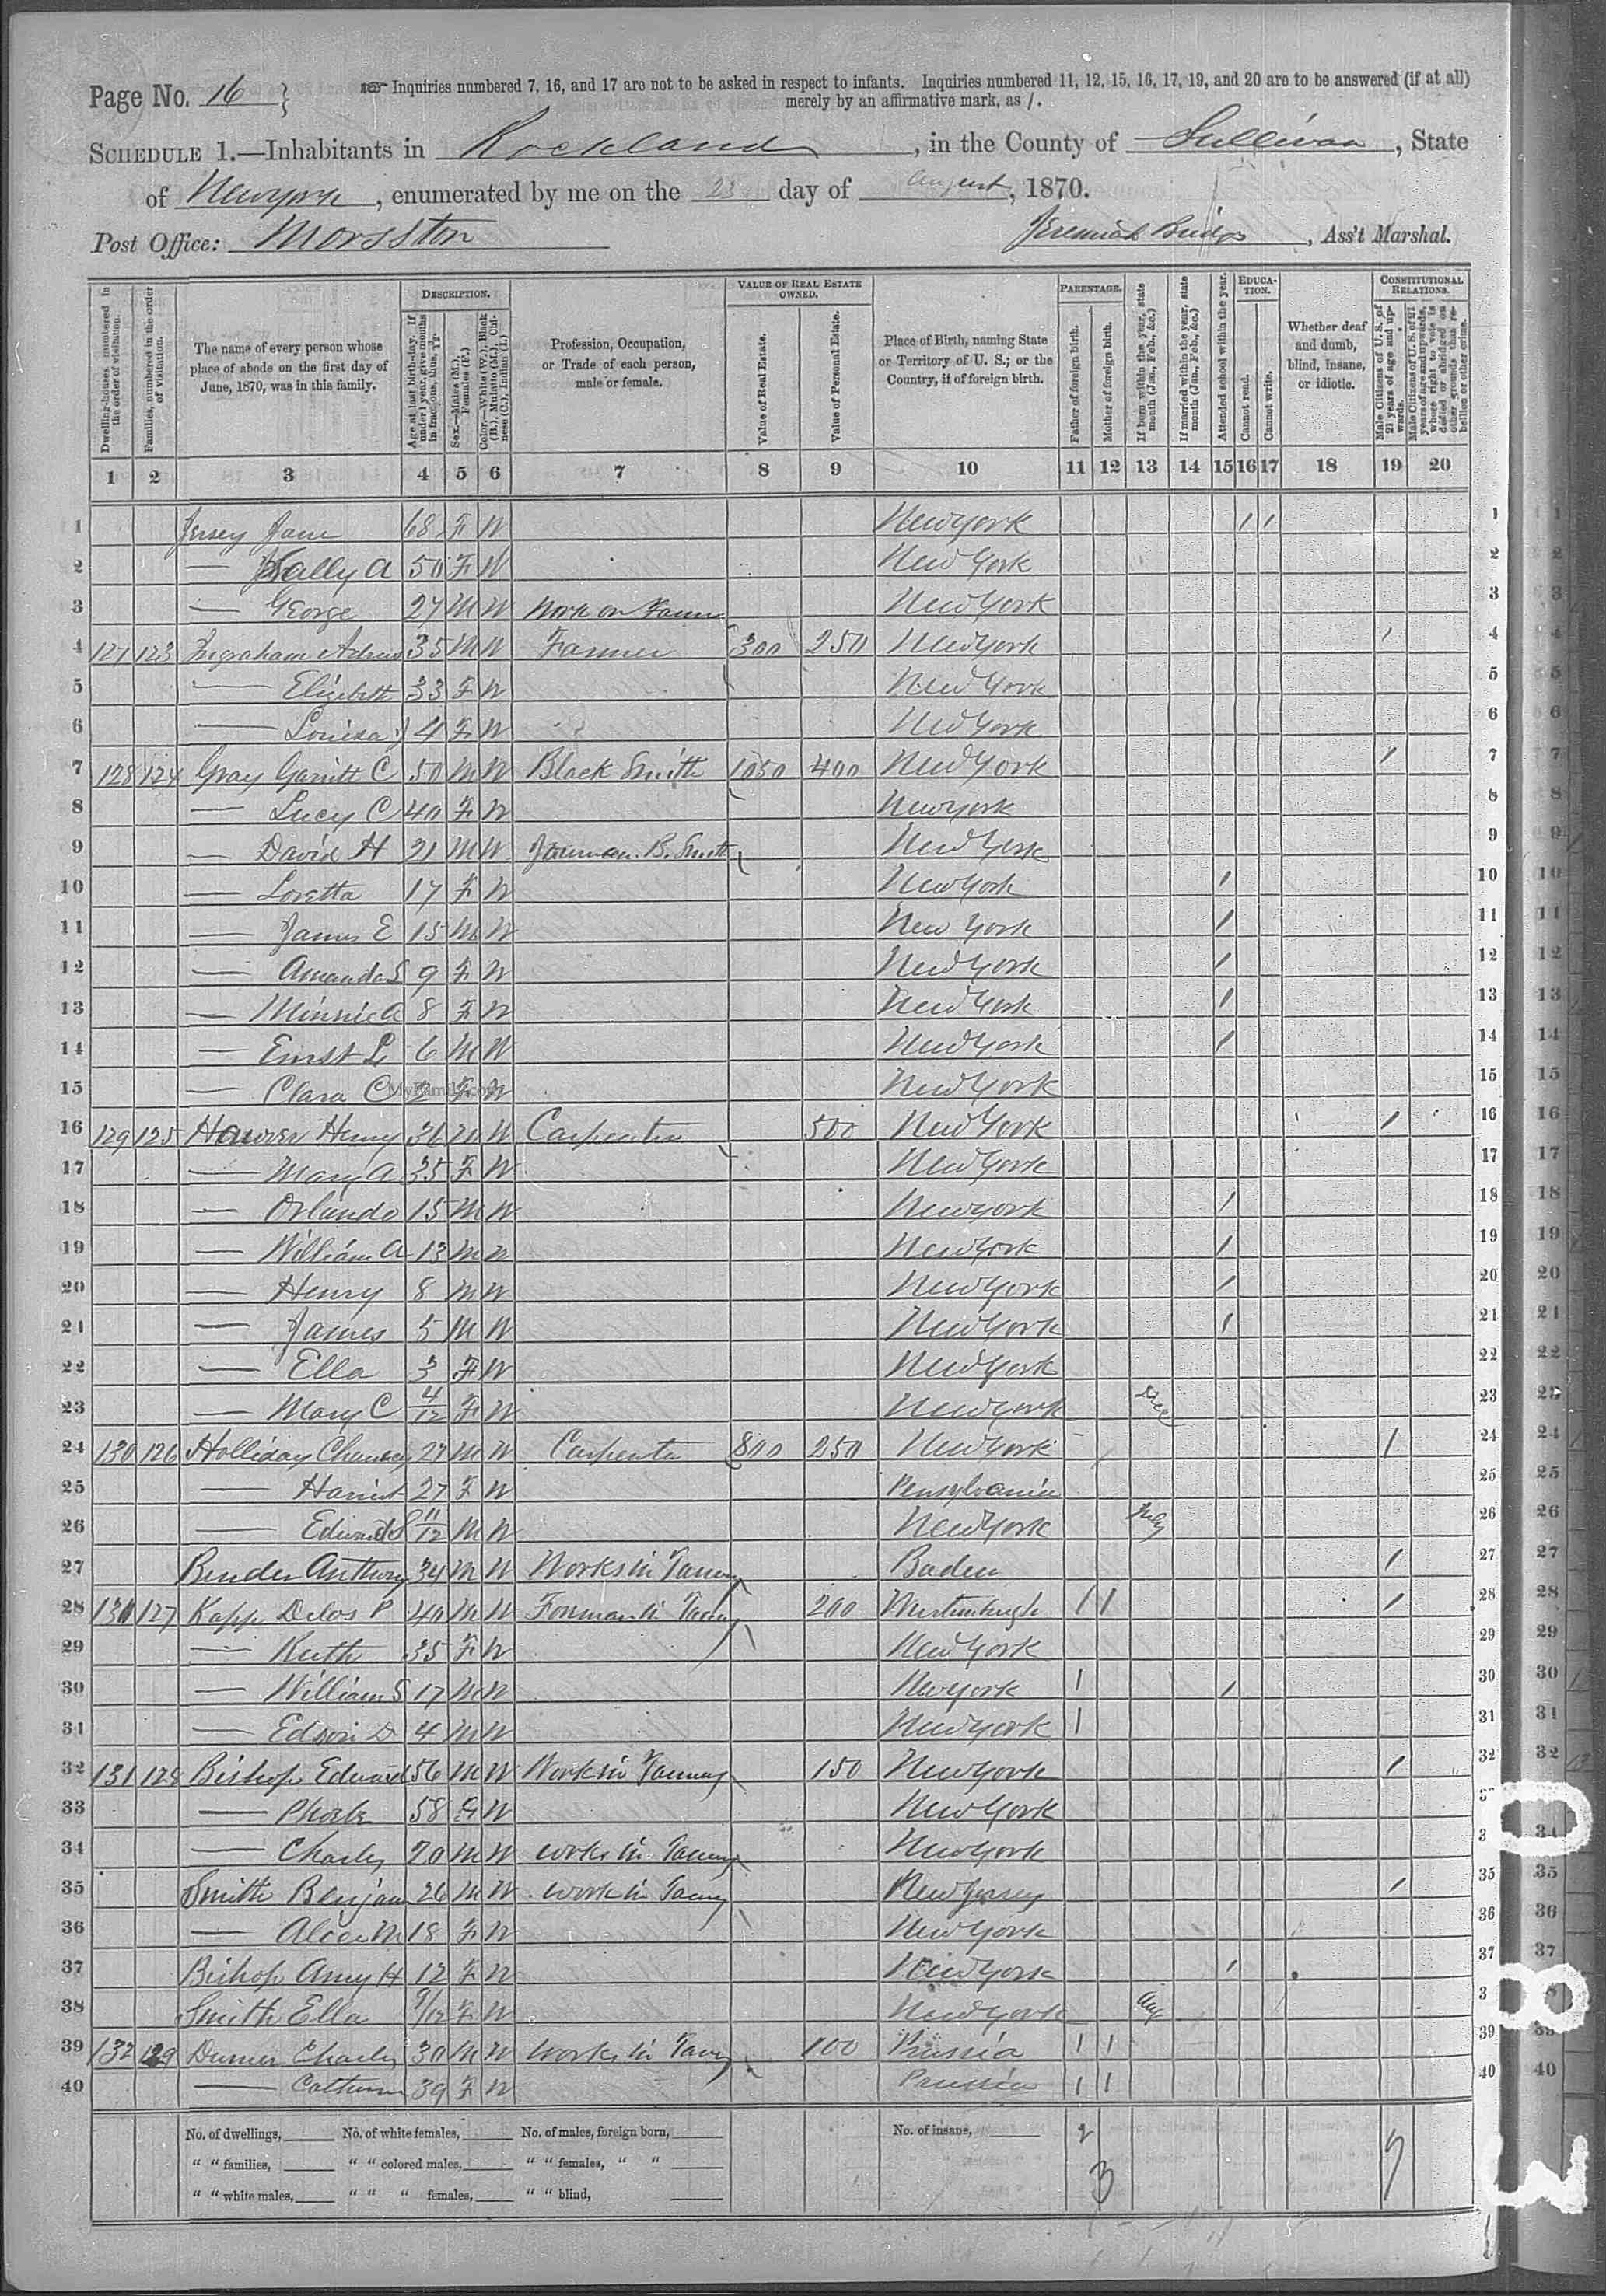 Page No. 16 } Inquiries numbered 7, 16, and 17 are not to be asked in respect to infants. Inquiries numbered 11, 12, 15, 16, 17, 19, and 20 are to be answered (if at all)
merely by an affirmative mark, as /.
SCHEDULE 1.—Inhabitants in Rockland, in the County of Sullivan, State
of Newyork, enumerated by me on the 23 day of August, 1870.
Post Office: Morsston Jeremiah , Ass't Marshal.
Dwelling-houses, numbered in the order of visitation.
Families, numbered in the order of visitation.
The name of every person whose place of abode on the first day of June, 1870, was in this family.
DESCRIPTION.
Age at last birth-day. If under 1 year, give months in fractions, thus,
Sex.—Males (M.), Females (F.)
Color.—White (W.), Black (B.), Mulatto (M.), Chinese (C.), Indian (I.)
Profession, Occupation, or Trade of each person, male or female.
VALUE OF REAL ESTATE OWNED.
Value of Real Estate.
Value of Personal Estate.
Place of Birth, naming State or Territory of U. S.; or the Country, if of foreign birth.
PARENTAGE.
Father of foreign birth.
Mother of foreign birth.
If born within the year, state month (Jan., Feb., &c.)
If married within the year, state month (Jan., Feb., &c.)
Attended school within the year.
EDUCATION.
Cannot read.
Cannot write.
Whether deaf and dumb, blind, insane, or idiotic.
CONSTITUTIONAL RELATIONS.
Male Citizens of U. S. of 21 years of age and upwards.
Male Citizens of U. S. of 21 years of age and upwards, whose right to vote is denied or abridged on other grounds than rebellion or other crime.
1 2 3 4 5 6 7 8 9 10 11 12 13 14 15 16 17 18 19 20
1 Jersey Jane 68 F W New York / / 1
2 — Sally A 50 F W New York 2
3 — George 27 M W Work on Farm New York 3
4 127 123 Ingraham 35 M W Farmer 300 250 New York / 4
5 — Elizabeth 33 F W New York 5
6 — Louisa 4 F W New York 6
7 128 124 Gray Garritt C 50 M W Black Smith 1050 400 New York / 7
8 — Lucy C 40 F W New York 8
9 — David H 21 M W B. Smith New York 9
10 — Loretta 17 F W New York / 10
11 — James E 15 M W New York / 11
12 — Amanda L 9 F W New York / 12
13 — Minnie A 8 F W New York / 13
14 — Ernst L 6 M W New York / 14
15 — Clara C 2 F W New York 15
MyFamily.com
16 129 125 Henry 36 M W Carpenter 500 New York / 16
17 — Mary A 35 F W New York 17
18 — Orlando 15 M W New York / 18
19 — William A 13 M W New York / 19
20 — Henry 8 M W New York / 20
21 — James 5 M W New York / 21
22 — Ella 3 F W New York 22
23 — Mary C 4/12 F W New York 23
24 130 126 Holliday Chauncy 27 M W Carpenter 800 250 New York / 24
25 — Harriet 27 F W Pensylvania 25
26 — Edward S 11/12 M W New York July 26
27 Bender Anthony 34 M W Works in Tannery Baden / 27
28 130 127 Kapp Delos P 40 M W Forman in Tannery 200 / / / 28
29 — Ruth 35 F W New York 29
30 — William S 17 M W New York / / 30
31 — Edson D 4 M W New York / 31
32 131 128 Bishop Edward 56 M W Work in Tannery 150 New York / 32
33 — Phoebe 58 F W New York
34 — Charles 20 M W works in Tannery New York 3
35 Smith Benjam 26 M W work in Tannery New Jersey / 35
36 — Alice M 18 F W New York 36
37 Bishop Amy H 12 F W New York / 37
38 Smith Ella 9/12 F W New York Aug 3
39 132 129 Charles 30 M W works in Tannery 100 Prussia / / 39
40 — 39 F W Prussia / / 40
No. of dwellings, No. of white females, No. of males, foreign born, No. of insane, 2
" " families, " " colored males, " " females, " " 3 9
" " white males, " " " females, " " blind,